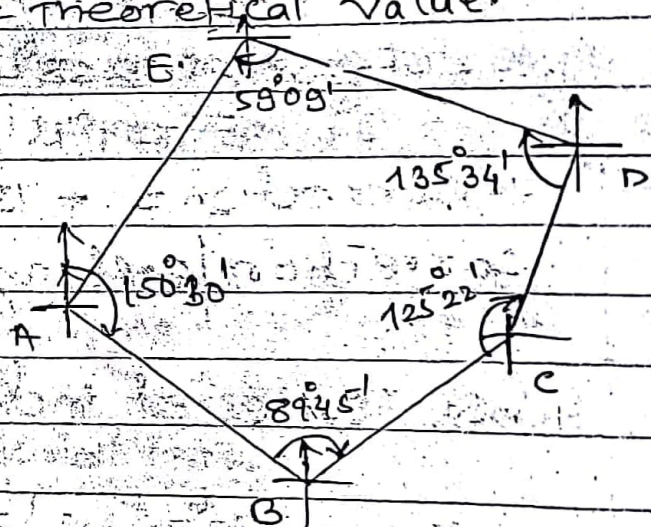 - Theoretical Value.
E.
59°09'
135°34'
D
150°30'
125°22'
A
C
89°45'
B